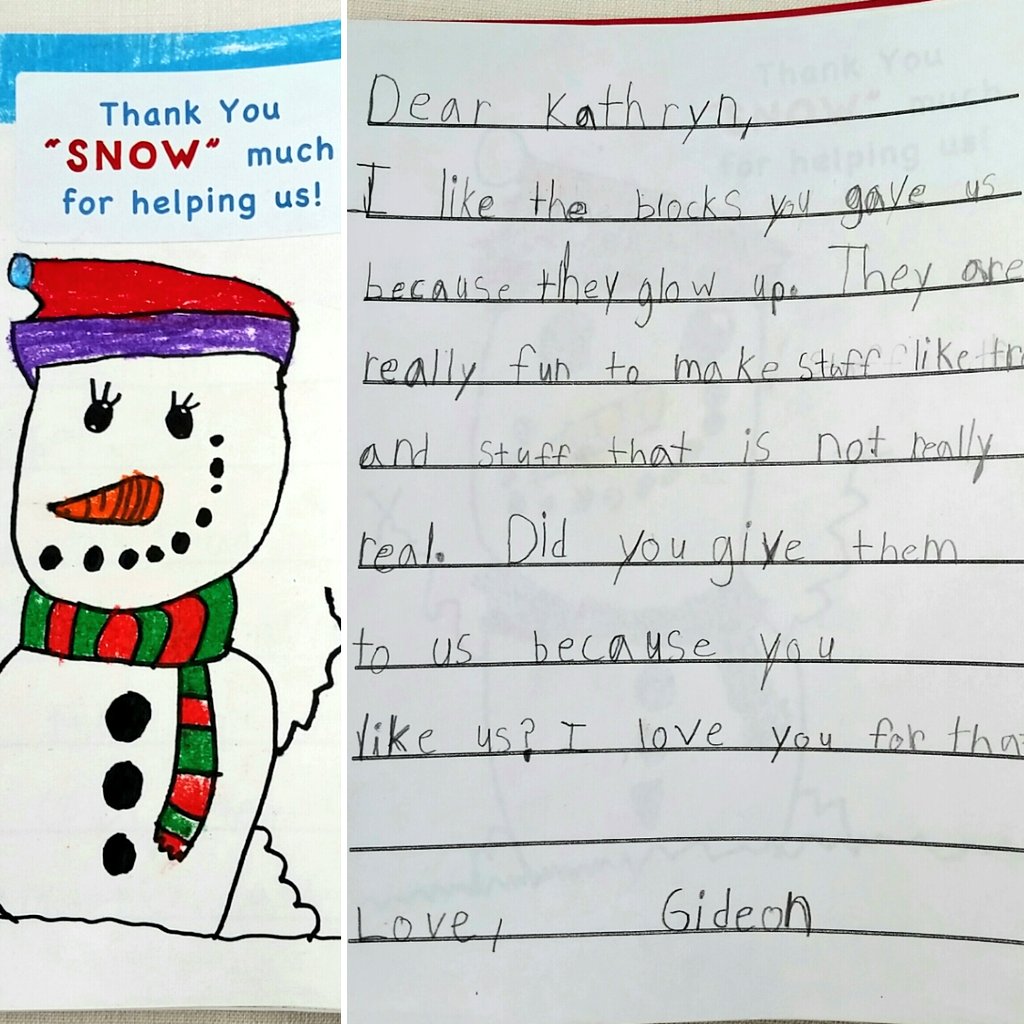 Thank You
"SNOW" much
for helping us!
Dear Kathryn,
I like the blocks you gave us
because they glow up. They are
really fun to make stuff like
and stuff that is not really
real. Did you give them
to us because you
like us? I love you for
Love, Gideon